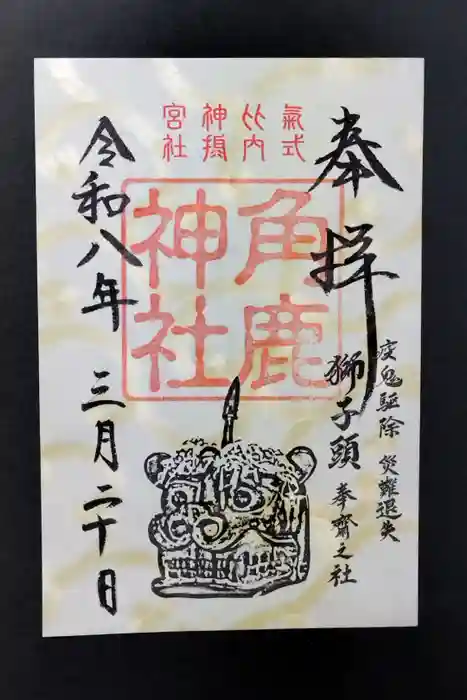 奉拝
疫鬼駆除 災難退失
獅子頭 奉齋之社
氣式
比内
神
宮社
角鹿
神社
令和八年 三月二十日